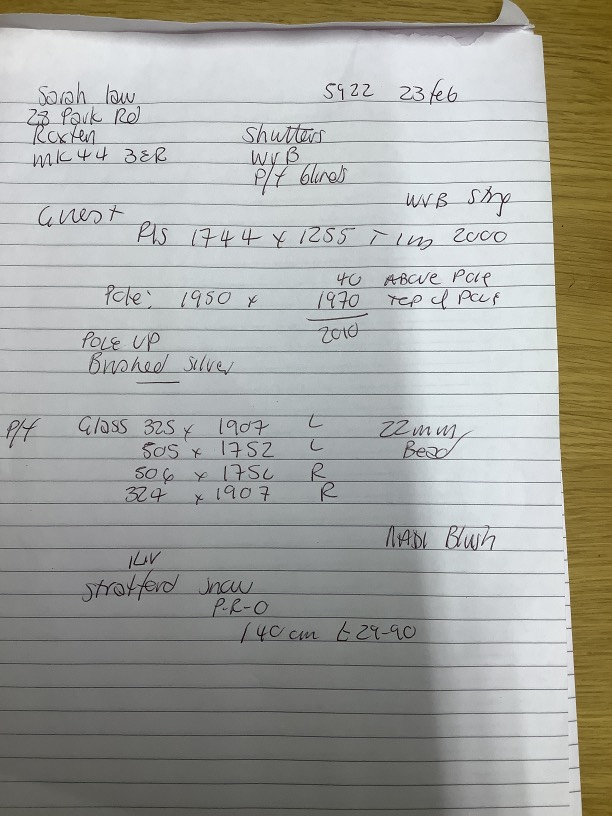 Sarah Law 5922 23 feb
28 Park Rd
Roxton Shutters
MK44 3ER WVB
P/f blinds
WVB
Guest
1744 x 1255 2000
40 ABOVE Pole
Pole: 1950 x 1970 TOP of Pole
2010
POLE UP
Brushed silver
P/f Glass 325 x 1907 L 22mm
505 x 1752 L Bead
506 x 1756 R
327 x 1907 R
Blush
Stratford Snow
P-R-O
140cm £29-90